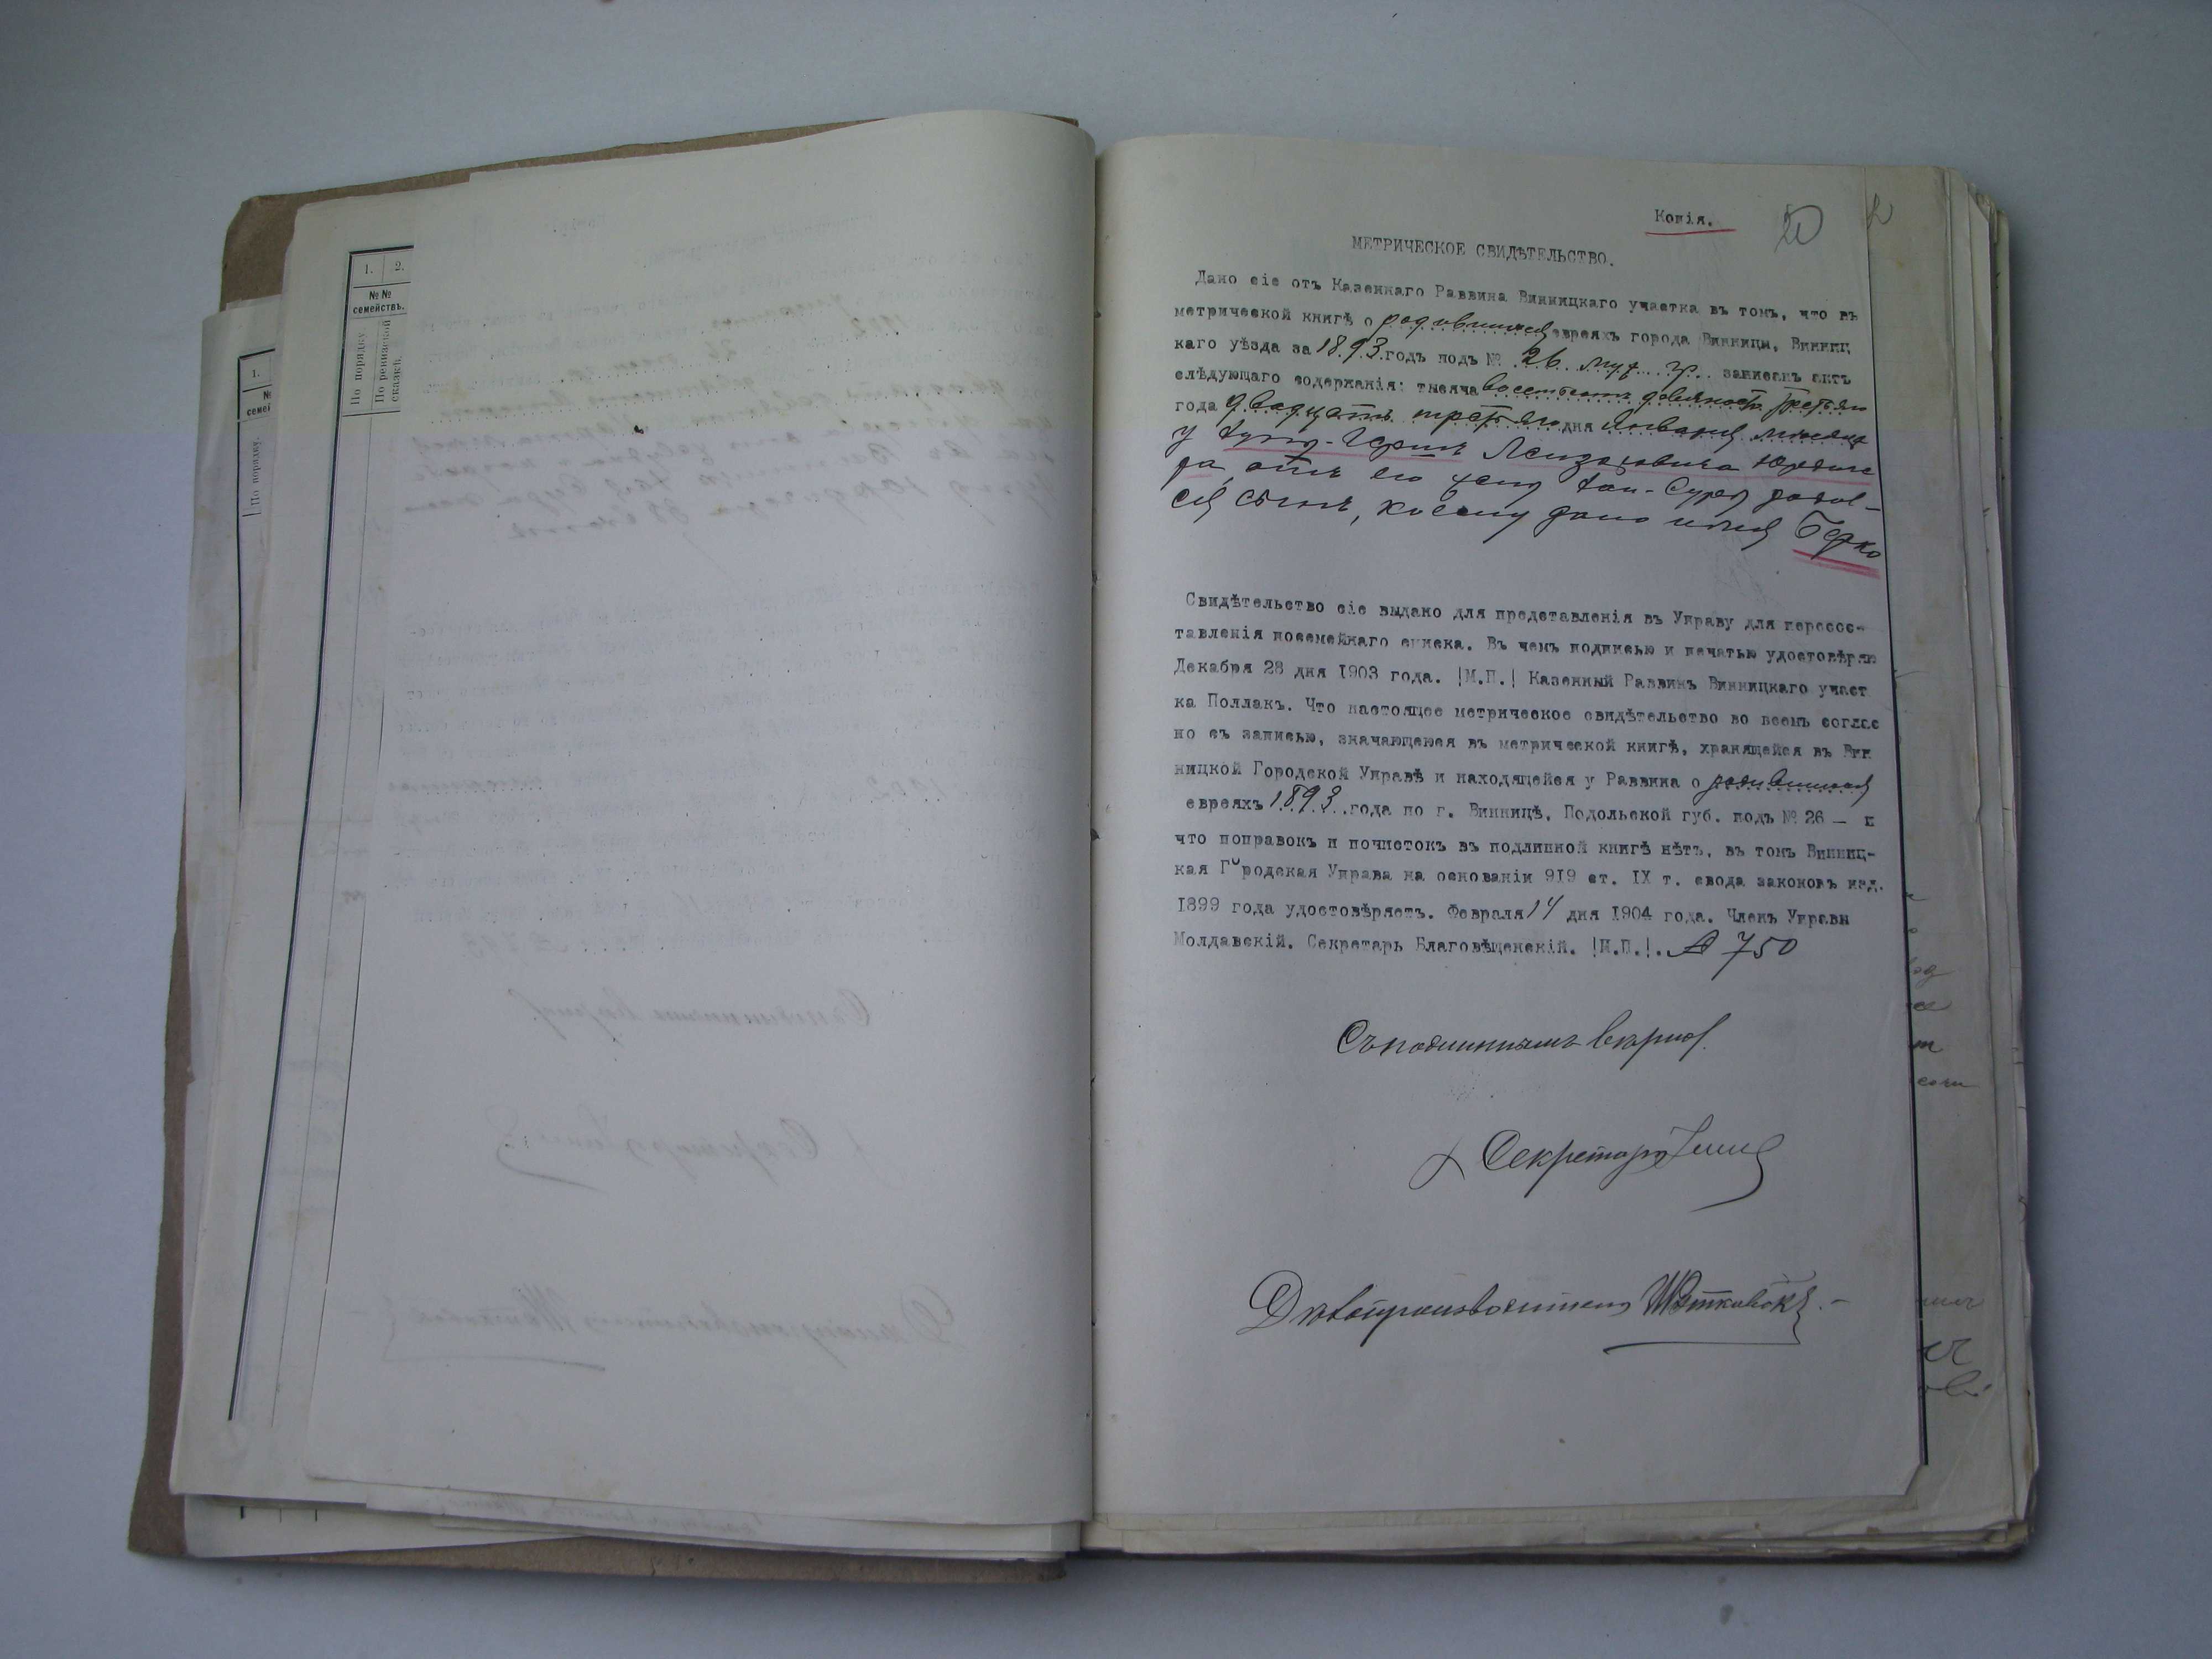 1. 2.
№№
семействъ.
По порядку
По ревизской
сказкѣ.
1.
№
семей
По порядку.
Копія.
20
МЕТРИЧЕСКОЕ СВИДѢТЕЛЬСТВО.
Дано сіе отъ Казеннаго Раввина Винницкаго участка въ томъ, что въ
метрической книгѣ о родившихся евреяхъ города Винницы, Винниц
каго уѣзда за 1893 годъ подъ № 26 муж. гр. записанъ актъ
слѣдующаго содержанія: тысяча восемьсотъ девяносто третьяго
года двадцать третьяго дня Января мѣсяца
у Герша Лейзоровича
ра, отъ его жены Хаи-Суры родил-
ся сынъ, коему дано имя Берко
Свидѣтельство сіе выдано для представленія въ Управу для пересос-
тавленія посемейнаго списка. Въ чемъ подписью и печатью удостовѣряю
Декабря 28 дня 1903 года. |М.П.| Казенный Раввинъ Винницкаго участ
ка Поллакъ. Что настоящее метрическое свидѣтельство во всемъ соглас
но съ записью, значающеюся въ метрической книгѣ, хранящейся въ Вин
ницкой Городской Управѣ и находящейся у Раввина о родившихся
евреяхъ 1893 года по г. Винницѣ, Подольской губ. подъ № 26 — и
что поправокъ и почистокъ въ подлинной книгѣ нѣтъ, въ томъ Винниц-
кая Городская Управа на основаніи 919 ст. IX т. свода законовъ изд.
1899 года удостовѣряетъ. Февраля 14 дня 1904 года. Членъ Управы
Молдавскій. Секретарь Благовѣщенскій. |М.П.|. № 750
Съ подлиннымъ вѣрно.
Секретарь
Дѣлопроизводитель